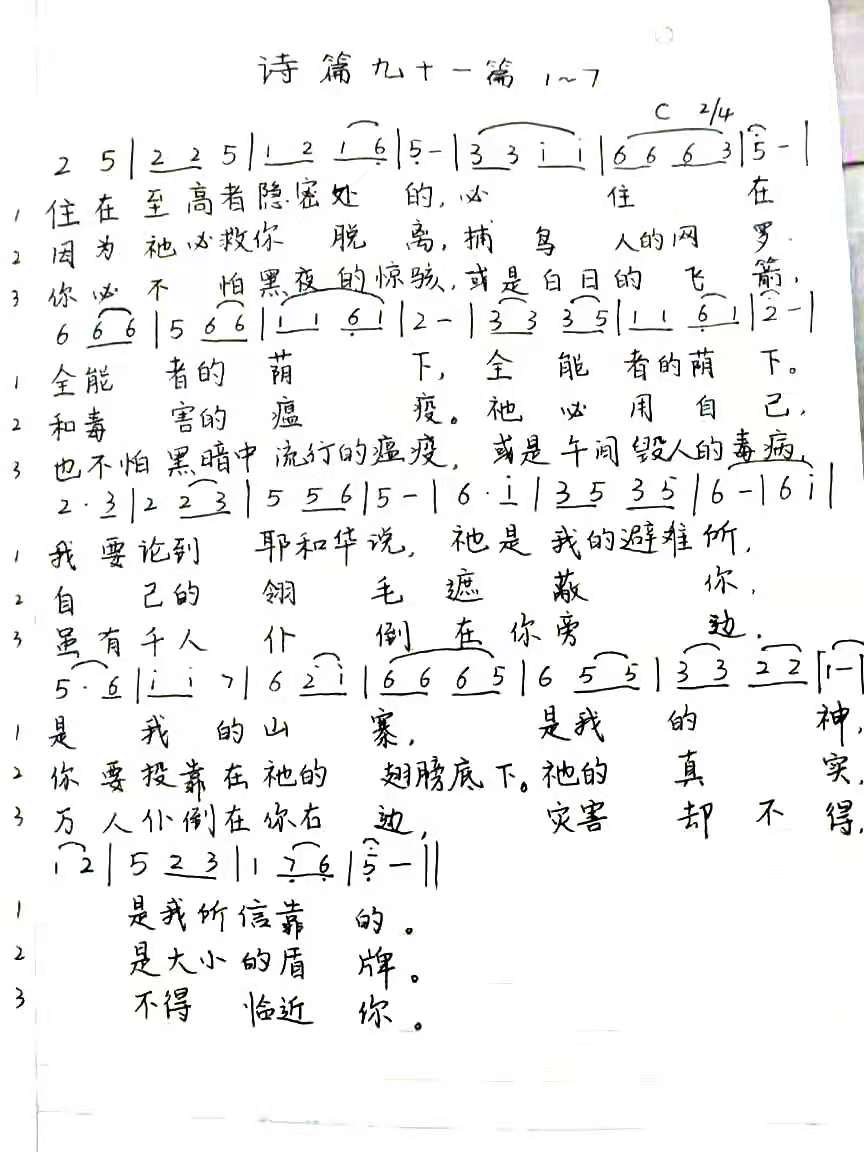 诗篇九十一篇 1~7
C 2/4
2 5 | 2 2 5 | 1 2 1 6 | 5 - | 3 3 i i | 6 6 6 3 | 5 - |
1 住在至高者隐密处 的,必 住 在
2 因为祂必救你 脱 离,捕鸟 人的网 罗.
3 你必不 怕黑夜的惊骇,或是白日的飞 箭,
6 6 6 | 5 6 6 | 1 1 6 1 | 2 - | 3 3 3 5 | 1 1 6 1 | 2 - |
1 全能 者的 荫 下,全 能 者的荫 下。
2 和毒 害的 瘟 疫。祂必用自己,
3 也不怕黑暗中流行的瘟疫,或是午间毁人的毒病,
2 · 3 | 2 2 3 | 5 5 6 | 5 - | 6 · i | 3 5 3 5 | 6 - | 6 i |
1 我要论到 耶和华说,祂是我的避难所,
2 自 己的 翎 毛 遮 蔽 你,
3 虽有千人 仆 倒在你旁 边.
5 · 6 | i i 7 | 6 2 i | 6 6 6 5 | 6 5 5 | 3 3 2 2 | [1 - |
1 是 我 的山 寨, 是我 的 神,
2 你要投靠在祂的 翅膀底下。祂的 真 实,
3 万人仆倒在你右 边, 灾害 却不得,
i 2 | 5 2 3 | 1 7 6 | 5 - ||
1 是我所信靠 的。
2 是大小的盾 牌。
3 不得 临近 你。